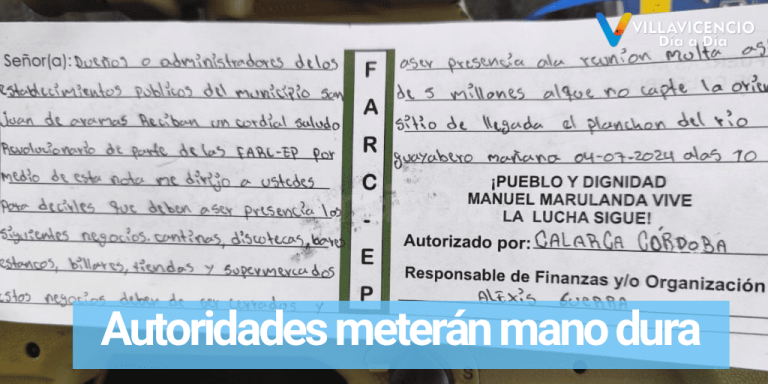 VILLAVICENCIO
Día a Día
Señor(a): Dueños o administradores delos
establecimientos publicos del municipio san
juan de aramas Reciban un cordial saludo
Revolucionario de parte de las FARC-EP por
medio de esta nota me dirijo a ustedes
Para decirles que deben aser presencia los
siguientes negocios. cantinas, discotecas, bares
estancos, billares, tiendas y supermercados
estos negocios deben de ser cerrados y
F
A
R
C
-
E
P
aser presencia ala reunion multa as
de 5 millones alque no capte la orien
sitio de llegada el planchon del rio
guayabero mañana 04-07-2024 alas 10
¡PUEBLO Y DIGNIDAD
MANUEL MARULANDA VIVE
LA LUCHA SIGUE!
Autorizado por: CALARCA CÓRDOBA
Responsable de Finanzas y/o Organización
ALEXIS GUERRA
Autoridades meterán mano dura